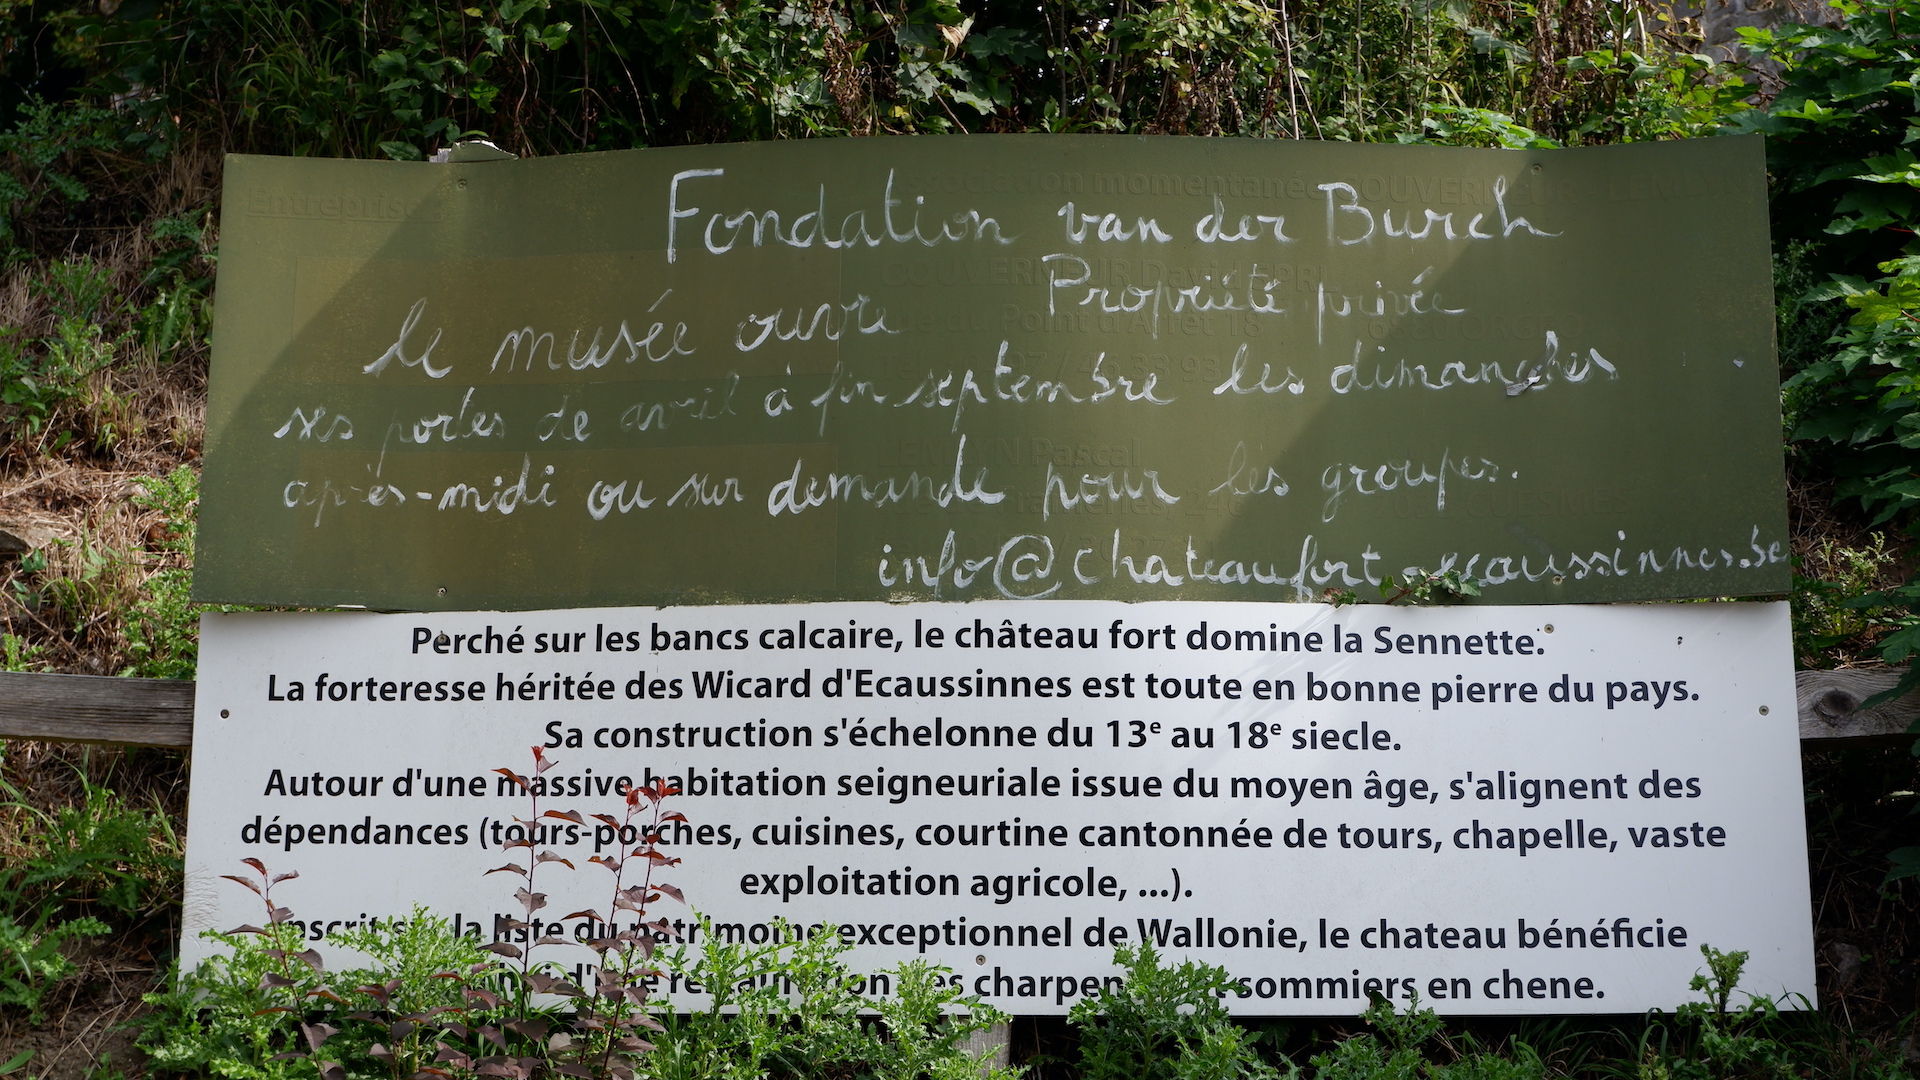 Fondation van der Burch
Propriété privée
le musée ouvre
ses portes de avril à fin septembre les dimanches
après-midi ou sur demande pour les groupes.
info@chateaufort-ecaussinnes.be
Perché sur les bancs calcaire, le château fort domine la Sennette.
La forteresse héritée des Wicard d'Ecaussinnes est toute en bonne pierre du pays.
Sa construction s'échelonne du 13e au 18e siecle.
Autour d'une massive habitation seigneuriale issue du moyen âge, s'alignent des
dépendances (tours-porches, cuisines, courtine cantonnée de tours, chapelle, vaste
exploitation agricole, ...).
la liste du patrimoine exceptionnel de Wallonie, le chateau bénéficie
d'une restauration des charpentes et sommiers en chene.